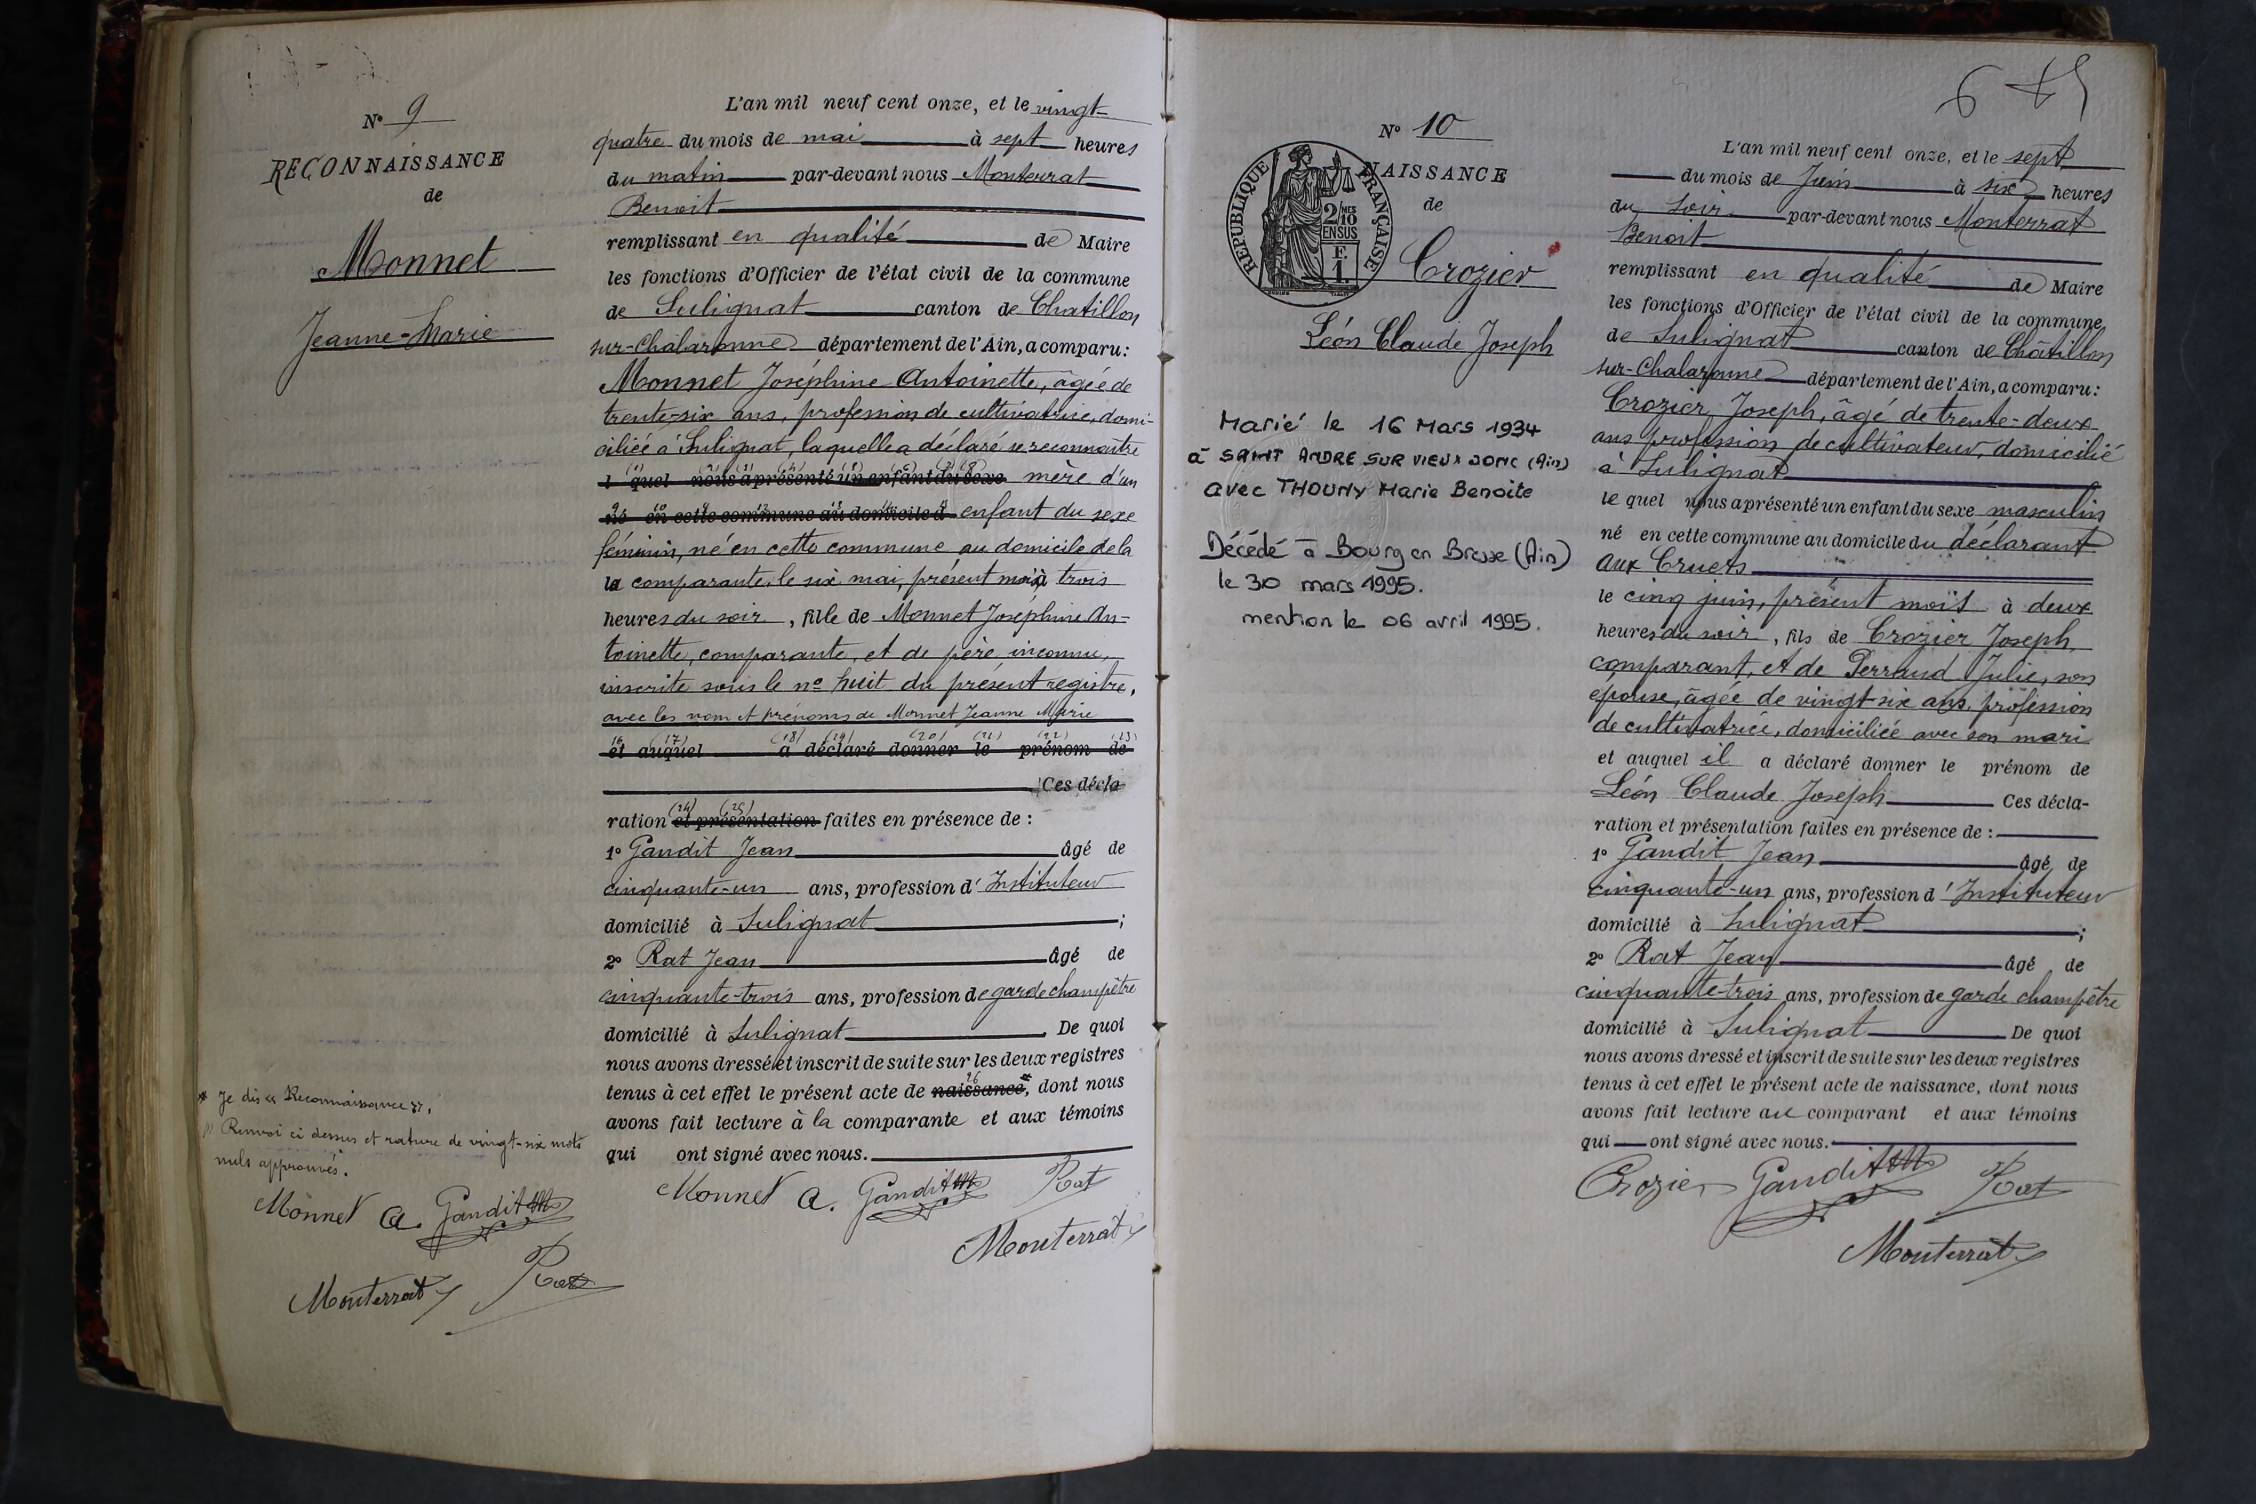 N° 9
RECONNAISSANCE
de
Monnet
Jeanne-Marie
L'an mil neuf cent onze, et le vingt-
quatre du mois de mai à sept heures
du matin par-devant nous Monterrat
Benoit
remplissant en qualité de Maire
les fonctions d'Officier de l'état civil de la commune
de Sulignat canton de Chatillon
sur-Chalaronne département de l'Ain, a comparu:
Monnet Joséphine Antoinette, âgée de
trente-six ans, profession de cultivatrice, domi-
ciliée à Sulignat, laquelle a déclaré se reconnaître
l quel nous a présenté un enfant du sexe mère d'un
né en cette commune au domicile d enfant du sexe
féminin, né en cette commune au domicile de la
la comparante, le six mai, présent mois à trois
heures du soir, fille de Monnet Joséphine An-
toinette, comparante, et de père inconnu,
inscrite sous le no huit du présent registre,
avec les nom et prénoms de Monnet Jeanne Marie
et auquel a déclaré donner le prénom de
Ces décla
ration et présentation faites en présence de :
1° Gandit Jean âgé de
cinquante-un ans, profession d'Instituteur
domicilié à Sulignat ;
2° Rat Jean âgé de
cinquante-trois ans, profession de garde champêtre
domicilié à Sulignat. De quoi
nous avons dressé et inscrit de suite sur les deux registres
tenus à cet effet le présent acte de naissance*, dont nous
avons fait lecture à la comparante et aux témoins
qui ont signé avec nous.
* Je dis « Reconnaissance »,
Renvoi ci dessus et rature de vingt-six mots
nuls approuvés.
Monnet a. Gandit
Monterrat Rat
Monnet a. Gandit Rat
Monterrat
N° 10
NAISSANCE
de
REPUBLIQUE FRANÇAISE
2/10 MES
EN SUS
F.
1.
Crozier
Léon Claude Joseph
Marié le 16 Mars 1934
à SAINT ANDRE SUR VIEUX JONC (Ain)
avec THOUNY Marie Benoite
Décédé à Bourg en Bresse (Ain)
le 30 mars 1995.
mention le 06 avril 1995.
L'an mil neuf cent onze, et le sept
du mois de Juin à six heures
du soir par-devant nous Monterrat
Benoit
remplissant en qualité de Maire
les fonctions d'Officier de l'état civil de la commune
de Sulignat canton de Châtillon
sur-Chalaronne département de l'Ain, a comparu:
Crozier Joseph, âgé de trente-deux
ans profession de cultivateur, domicilié
à Sulignat
le quel nous a présenté un enfant du sexe masculin
né en cette commune au domicile du déclarant
aux Cruets
le cinq juin, présent mois à deux
heures du soir, fils de Crozier Joseph,
comparant, et de Perraud Julie, son
épouse, âgée de vingt-six ans, profession
de cultivatrice, domiciliée avec son mari
et auquel il a déclaré donner le prénom de
Léon Claude Joseph Ces décla-
ration et présentation faites en présence de :
1° Gandit Jean âgé de
cinquante-un ans, profession d'Instituteur
domicilié à Sulignat ;
2° Rat Jean âgé de
cinquante-trois ans, profession de garde champêtre
domicilié à Sulignat De quoi
nous avons dressé et inscrit de suite sur les deux registres
tenus à cet effet le présent acte de naissance, dont nous
avons fait lecture au comparant et aux témoins
qui ont signé avec nous.
Crozier Gandit Rat
Monterrat